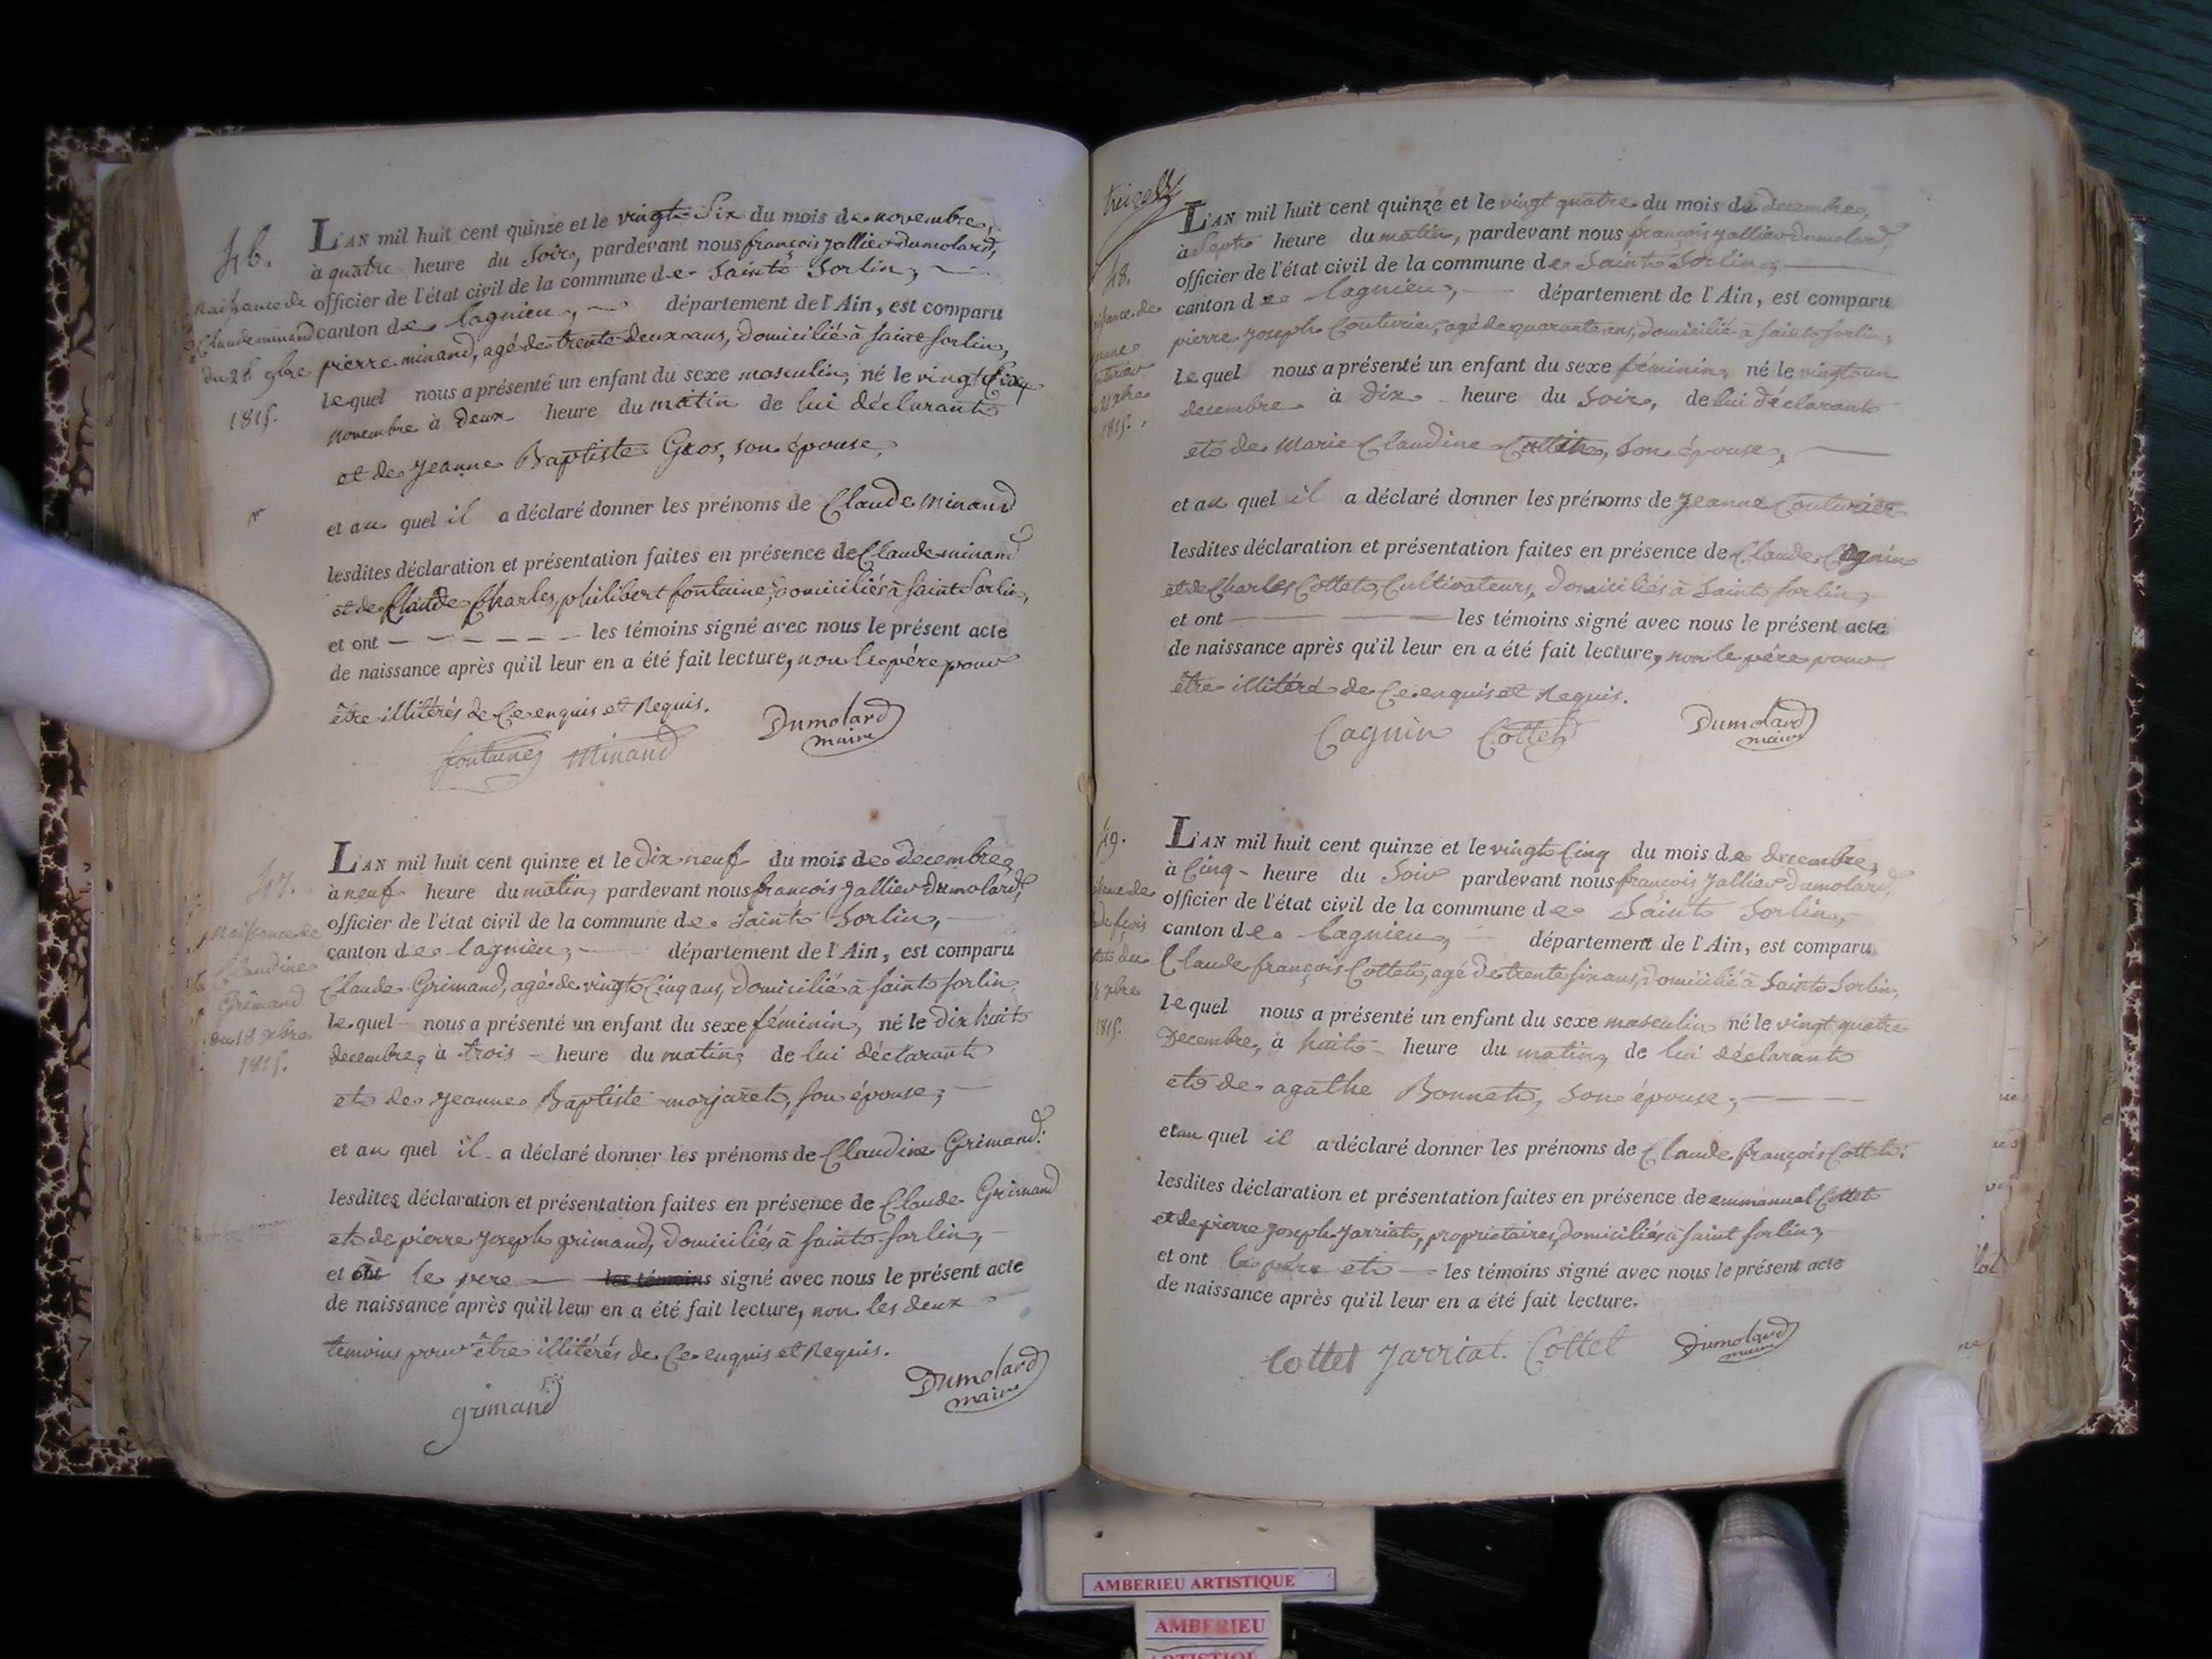 46.
Naissance de
Claude minand
du 26 9bre
1815.
L'AN mil huit cent quinze et le vingt Six du mois de novembre,
à quatre heure du Soir, pardevant nous françois Jallier Dumolard,
officier de l'état civil de la commune de Saint Sorlin,
canton de lagnieu, département de l'Ain, est comparu
pierre minand, agé de trente deux ans, domicilié à saint sorlin,
lequel nous a présenté un enfant du sexe masculin, né le vingt Six
novembre à Deux heure du matin de lui déclarant
et de Jeanne Baptiste Gros, son épouse,
et au quel il a déclaré donner les prénoms de Claude Minand
lesdites déclaration et présentation faites en présence de Claude minand
et de Claude Charles philibert fontaine, domiciliés à saint Sorlin,
et ont les témoins signé avec nous le présent acte
de naissance après qu'il leur en a été fait lecture, non le pére pour
être illitérés de Ce enquis et Requis.
fontaine Minand Dumolard
maire
47.
Naissance de
Claudine
Grimand
du 18 xbre
1815.
L'AN mil huit cent quinze et le Dix neuf du mois de decembre,
à neuf heure du matin, pardevant nous françois Jallier Dumolard,
officier de l'état civil de la commune de Saint Sorlin,
canton de lagnieu, département de l'Ain, est comparu
Claude Grimand, agé de vingt Cinq ans, Domicilié à saint sorlin,
lequel nous a présenté un enfant du sexe féminin, né le Dix huit
decembre, à trois heure du matin, de lui déclarant
et de Jeanne Baptiste marjaret, son épouse,
et au quel il a déclaré donner les prénoms de Claudine Grimand.
lesdites déclaration et présentation faites en présence de Claude Grimand
et de pierre Joseph grimand, Domiciliés à saint sorlin,
et ont le pere les témoins signé avec nous le présent acte
de naissance après qu'il leur en a été fait lecture, non les deux
temoins pour être illitérés de Ce enquis et Requis.
grimand Dumolard
maire
48.
de
xbre
1815.
L'AN mil huit cent quinze et le vingt quatre du mois de decembre,
à Sept heure du matin, pardevant nous françois Jallier Dumolard,
officier de l'état civil de la commune de Saint Sorlin,
canton de lagnieu, département de l'Ain, est comparu
pierre Joseph Couturier, agé de quarante ans, domicilié à saint sorlin,
lequel nous a présenté un enfant du sexe féminin, né le vingt un
decembre à Dix heure du Soir, de lui déclarant
et de Marie Claudine Cottin, son épouse,
et au quel il a déclaré donner les prénoms de Jeanne Couturier
lesdites déclaration et présentation faites en présence de Claude Cagnin
et de Charles Cottet, Cultivateurs, domiciliés à Saint sorlin,
et ont les témoins signé avec nous le présent acte
de naissance après qu'il leur en a été fait lecture, non le pére pour
être illitéré de Ce enquis et Requis.
Cagnin Cottet Dumolard
maire
49.
de
de fçois
du
xbre
1815.
L'AN mil huit cent quinze et le vingt Cinq du mois de decembre,
à Cinq heure du Soir pardevant nous françois Jallier Dumolard,
officier de l'état civil de la commune de Saint Sorlin,
canton de lagnieu, département de l'Ain, est comparu
Claude françois Cottet, agé de trente six ans, domicilié à Saint Sorlin,
lequel nous a présenté un enfant du sexe masculin né le vingt quatre
Decembre, à huit heure du matin, de lui déclarant
et de agathe Bonnet, son épouse,
et au quel il a déclaré donner les prénoms de Claude françois Cottet.
lesdites déclaration et présentation faites en présence de emmanuel Cottet
et de pierre Joseph Jarriat, proprietaires, domiciliés à saint sorlin,
et ont le pére et les témoins signé avec nous le présent acte
de naissance après qu'il leur en a été fait lecture.
Cottet Jarriat. Cottet Dumolard
maire
AMBERIEU ARTISTIQUE
AMBERIEU
ARTISTIQUE